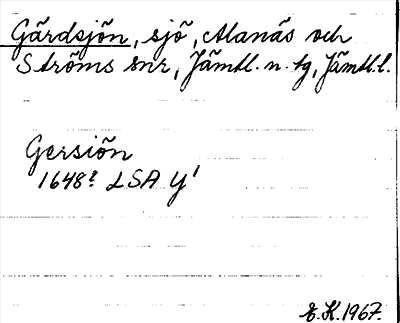 Gärdsjön, sjö, Alanäs och
Ströms snr, Jämtl. n. tg, Jämtl. l.
Gersiön
1648? LSA Y¹
E.K. 1967.